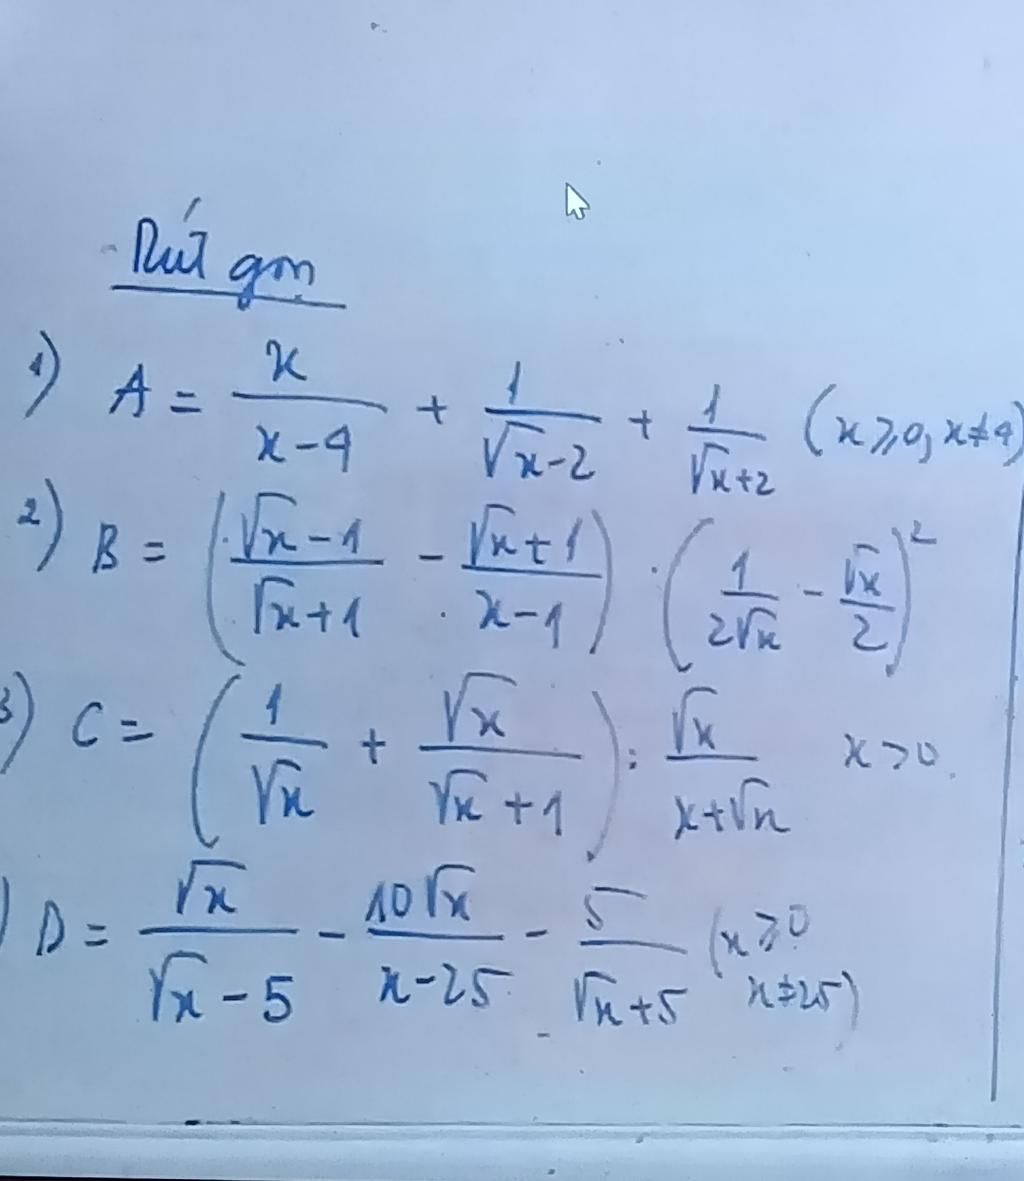 Rút gọn
1) A = x/(x-4) + 1/(√x-2) + 1/(√x+2) (x≥0, x≠4)
2) B = ((√x-1)/(√x+1) - (√x+1)/(x-1)) · (1/(2√x) - √x/2)²
3) C = (1/√x + √x/(√x+1)) : √x/(x+√x) x>0.
) D = √x/(√x-5) - 10√x/(x-25) - 5/(√x+5) (x≥0
x≠25)